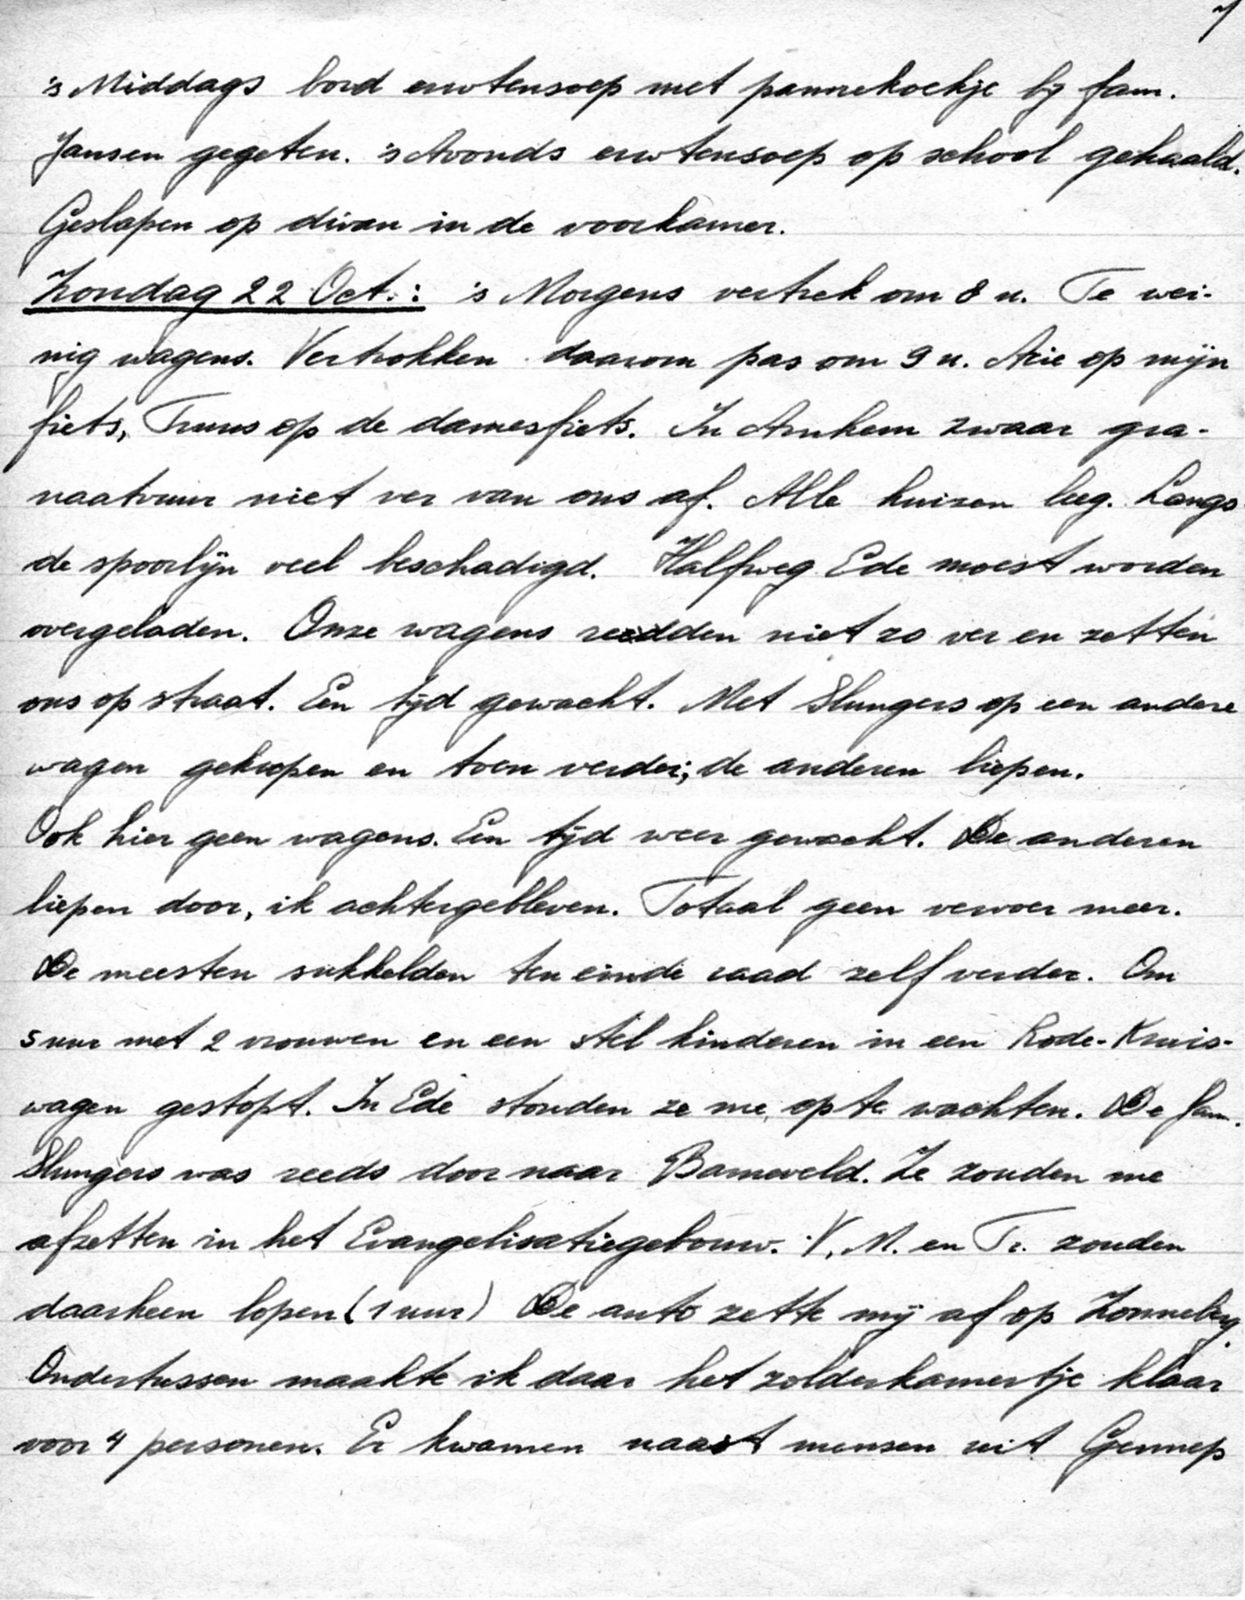 's Middags bord erwtensoep met pannekoekje bij fam.
Jansen gegeten. 's Avonds erwtensoep op school gehaald.
Geslapen op divan in de voorkamer.
Zondag 22 Oct.: 's Morgens vertrek om 8 u. Te wei-
nig wagens. Vertrokken daarom pas om 9 u. Arie op mijn
fiets, Truus op de damesfiets. In Arnhem zwaar gra-
naatvuur niet ver van ons af. Alle huizen leeg. Langs
de spoorlijn veel beschadigd. Halfweg Ede moest worden
overgeladen. Onze wagens reedden niet zo ver en zetten
ons op straat. Een tijd gewacht. Met Slungers op een andere
wagen gekropen en toen verder; de anderen liepen.
Ook hier geen wagens. Een tijd weer gewacht. De anderen
liepen door, ik achtergebleven. Totaal geen vervoer meer.
De meesten sukkelden ten einde raad zelf verder. Om
5 uur met 2 vrouwen en een stel kinderen in een Rode-Kruis-
wagen gestopt. In Ede stonden ze me op te wachten. De fam.
Slungers was reeds door naar Barneveld. Ze zouden me
afzetten in het Evangelisatiegebouw. V, M. en Tr. zouden
daarheen lopen (1 uur) De auto zette mij af op Zonneberg.
Ondertussen maakte ik daar het zolderkamertje klaar
voor 4 personen. Er kwamen naast mensen uit Gennep